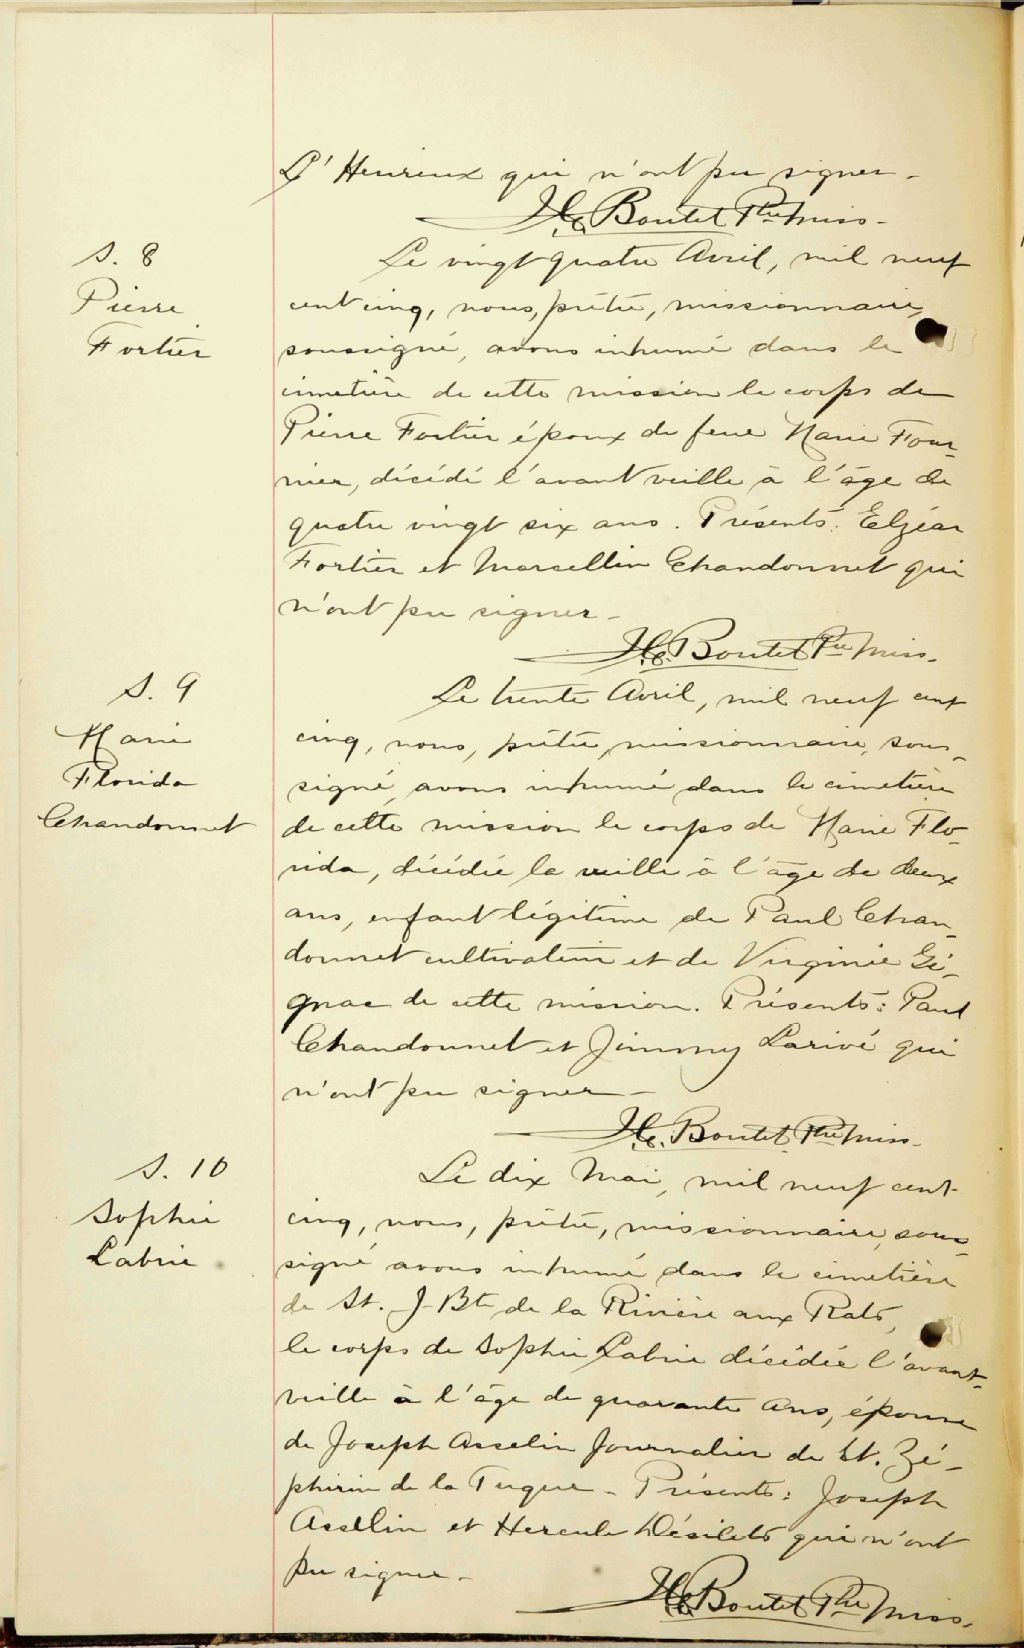 L'Heureux qui n'ont pu signer -
H. C. Boutet Ptre miss -
S. 8
Pierre
Fortier
Le vingt quatre Avril, mil neuf
cent cinq, nous, prêtre, missionnaire,
soussigné, avons inhumé dans le
cimetière de cette mission le corps de
Pierre Fortier époux de feue Marie Four-
nier, décédé l'avant veille à l'âge de
quatre vingt six ans. Présents: Elzéar
Fortier et Marcellin Chandonnet qui
n'ont pu signer -
H. C. Boutet Ptre Miss.
S. 9
Marie
Florida
Chandonnet
Le trente Avril, mil neuf cent
cinq, nous, prêtre, missionnaire, sous-
signé, avons inhumé dans le cimetière
de cette mission le corps de Marie Flo-
rida, décédée la veille à l'âge de deux
ans, enfant légitime de Paul Chan-
donnet cultivateur et de Virginie Gé-
gnac de cette mission. Présents: Paul
Chandonnet et Jimmy Larivé qui
n'ont pu signer -
H. C. Boutet Ptre Miss.
S. 10
Sophie
Labrie
Le dix Mai, mil neuf cent
cinq, nous, prêtre, missionnaire, sous-
signé avons inhumé dans le cimetière
de St. J-Bte de la Rivière aux Rats,
le corps de Sophie Labrie décédée l'avant-
veille à l'âge de quarante ans, épouse
de Joseph Asselin Journalier de St. Zé-
phirin de la Tuque - Présents: Joseph
Asselin et Hercule Désilets qui n'ont
pu signer -
H. C. Boutet Ptre Miss.